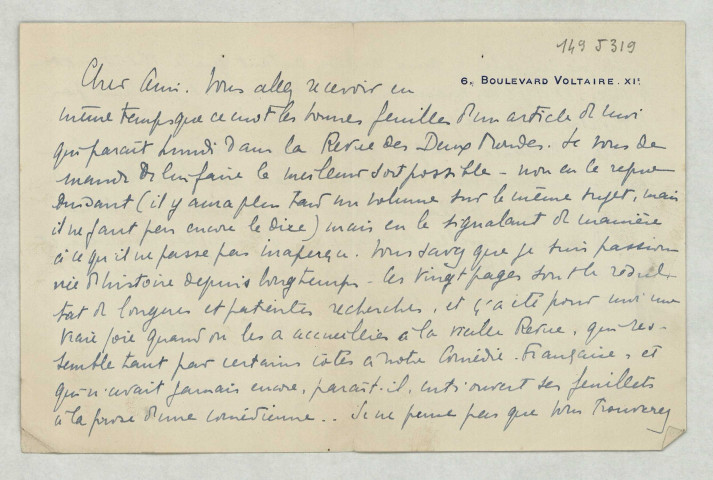 149 J 319
6, BOULEVARD VOLTAIRE. XIe
Cher Ami. Vous allez recevoir en
même temps que ce mot les bonnes feuilles d'un article de moi
qui paraît lundi dans la Revue des Deux Mondes. Je vous de
mande de lui faire le meilleur sort possible - non en le repro
duisant (il y aura plus tard un volume sur le même sujet, mais
il ne faut pas encore le dire) mais en le signalant de manière
à ce qu'il ne passe pas inaperçu. Vous savez que je suis passion
née d'histoire depuis longtemps - Ces vingt pages sont le résul-
tat de longues et patientes recherches, et ç'a été pour moi une
vraie joie quand on les a accueillies à la vieille Revue, qui res-
semble tant par certains côtés à notre Comédie-Française, et
qui n'avait jamais encore, paraît-il, entr'ouvert ses feuillets
à la prose d'une comédienne.. Je ne pense pas que vous trouverez